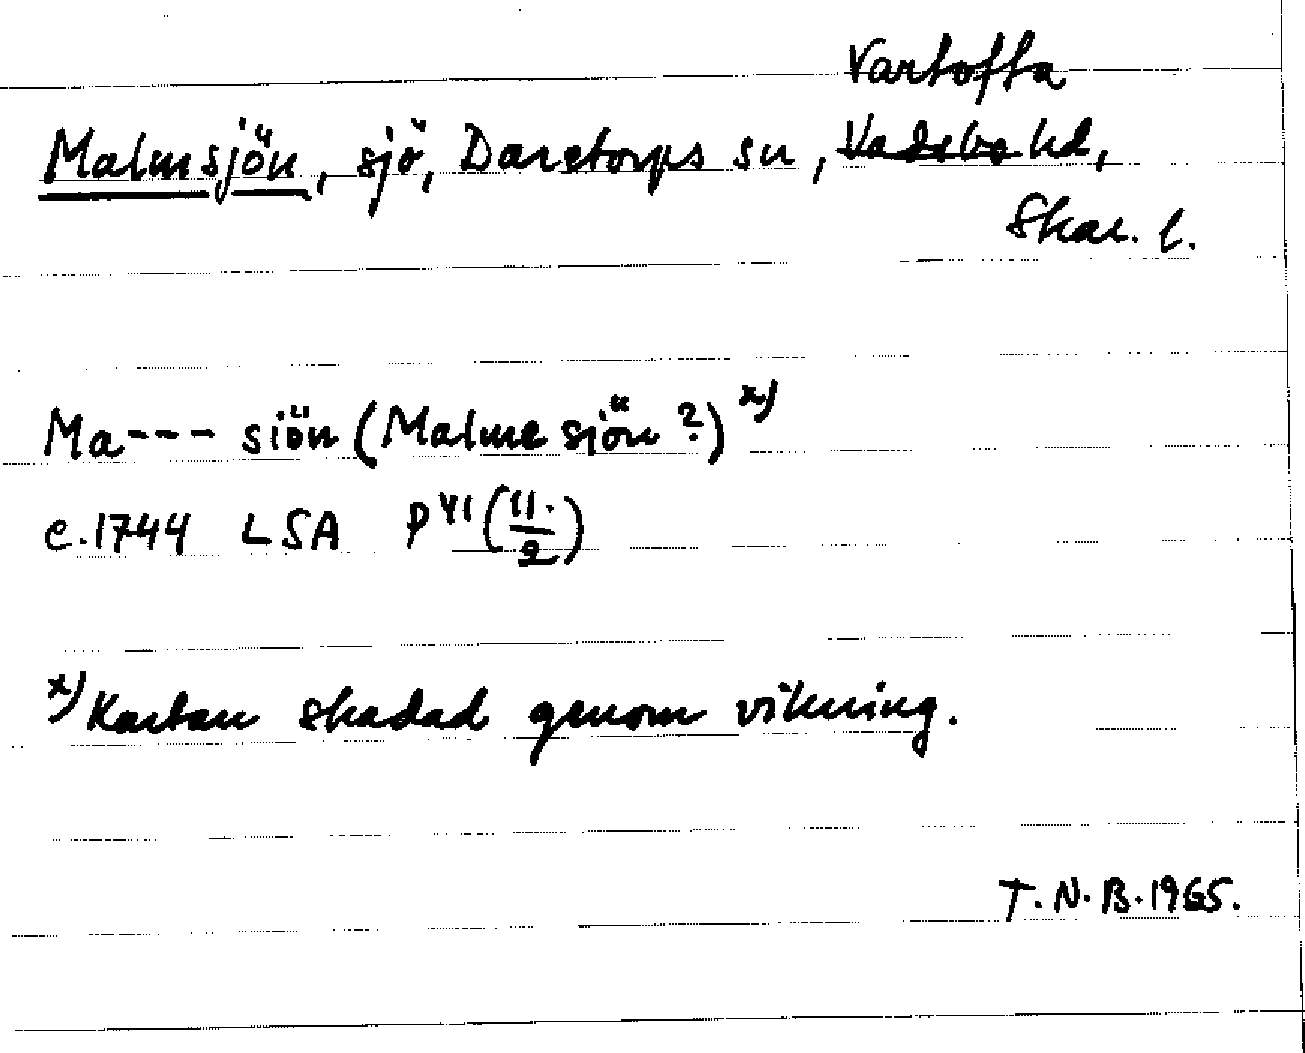 Vartofta
Malmsjön, sjö, Daretorps sn, Vadsbo hd,
Skar. l.
Ma--- siön (Malme siön?) x)
c. 1744 LSA P VI (11./2)
x) Kartan skadad genom vikning.
T. N. B. 1965.